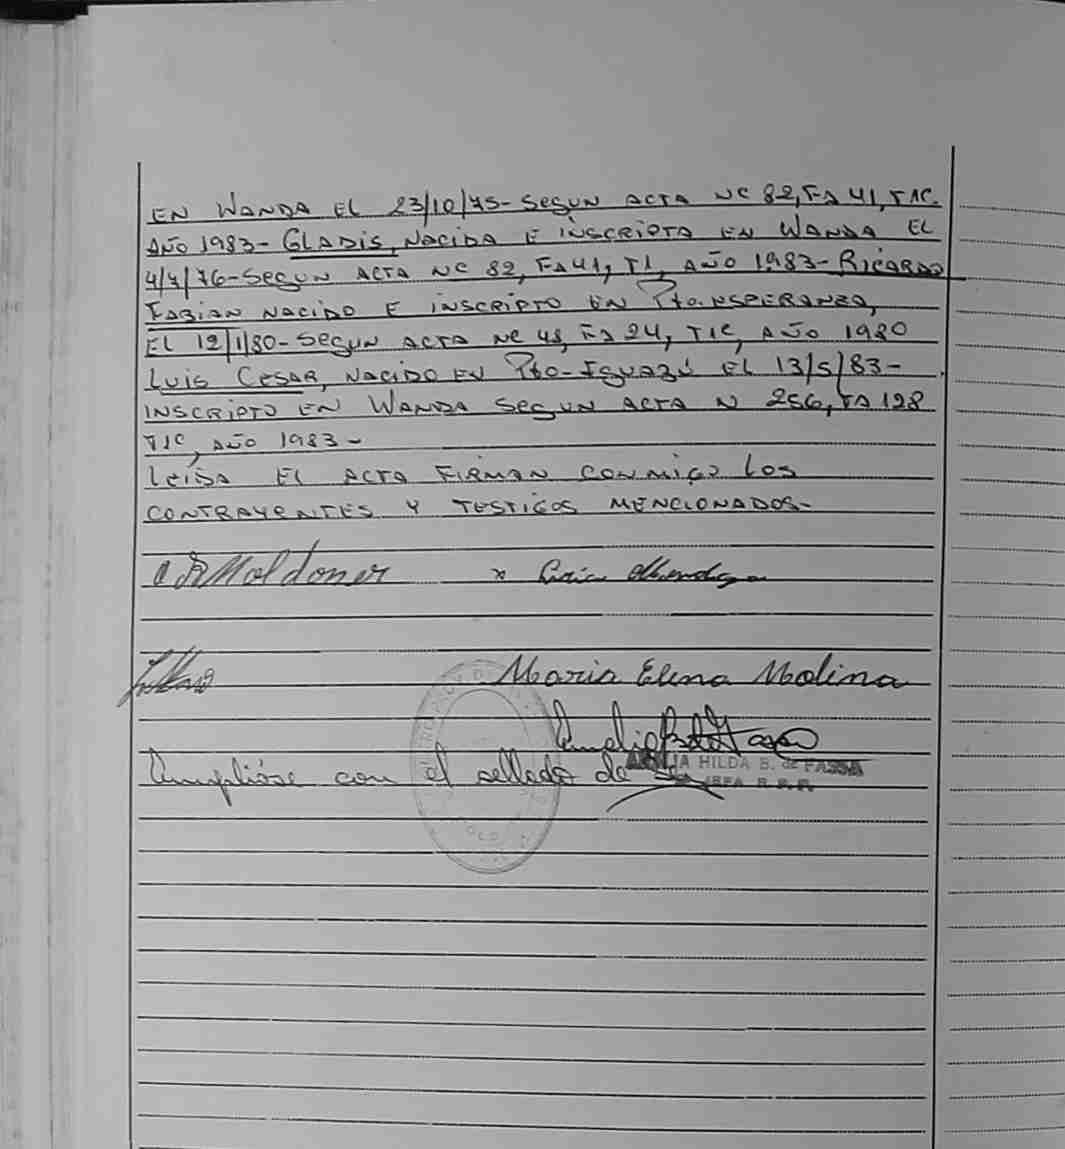 EN WANDA EL 23/10/75- SEGUN ACTA Nº 82, Fº 41, T 1º.
AÑO 1983- GLADIS, NACIDA E INSCRIPTA EN WANDA EL
4/7/76- SEGUN ACTA Nº 82, Fº 41, T1, AÑO 1983- RICARDO
FABIAN NACIDO E INSCRIPTO EN Pto. ESPERANZA,
EL 12/1/80- SEGUN ACTA Nº 48, Fº 24, T1º, AÑO 1980
LUIS CESAR, NACIDO EN Pto- IGUAZÚ EL 13/5/83-
INSCRIPTO EN WANDA SEGUN ACTA N 256, Fº 128
T1º, AÑO 1983-
LEIDA EL ACTA FIRMAN CONMIGO LOS
CONTRAYENTES Y TESTIGOS MENCIONADOS-
Maldoner x
Maria Elena Molina
Cumplióse con el sellado de
HILDA B. de FASSA
JEFA R. P. P.